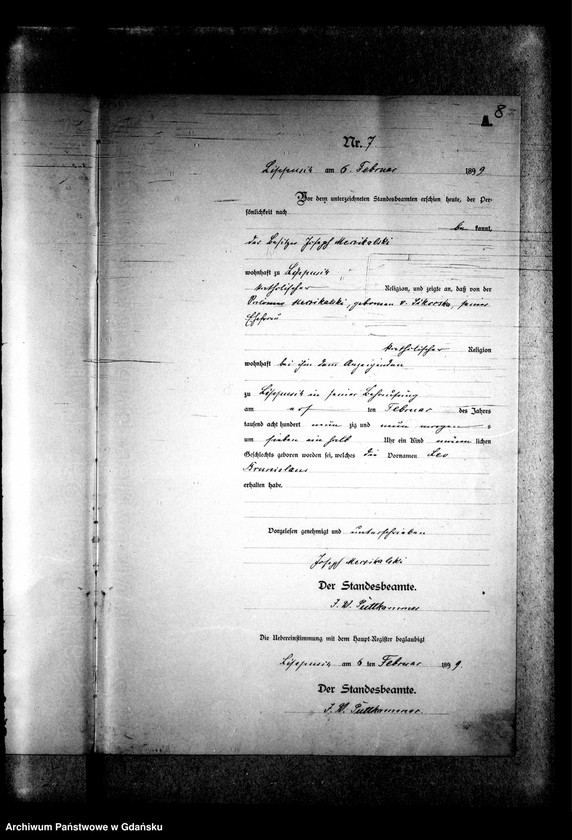 8
A
Nr. 7
Lippusch am 6. Februar 1899
Vor dem unterzeichneten Standesbeamten erschien heute, der Per-
sönlichkeit nach
be kannt,
der Besitzer Joseph
wohnhaft zu Lippusch
katholischer Religion, und zeigte an, daß von der
geborenen v. seiner
Ehefrau
katholischer Religion
wohnhaft bei ihm dem Anzeigenden
zu Lippusch in seiner Behausung
am ten Februar des Jahres
tausend acht hundert neun zig und neun morgens
um sieben ein halb Uhr ein Kind männlichen
Geschlechts geboren worden sei, welches die Vornamen Leo
Bronislaus
erhalten habe.
Vorgelesen genehmigt und unterschrieben
Joseph
Der Standesbeamte.
J. V. Puttkammer
Die Uebereinstimmung mit dem Haupt-Register beglaubigt
Lippusch am 6 ten Februar 1899.
Der Standesbeamte.
J. V. Puttkammer
Archiwum Państwowe w Gdańsku